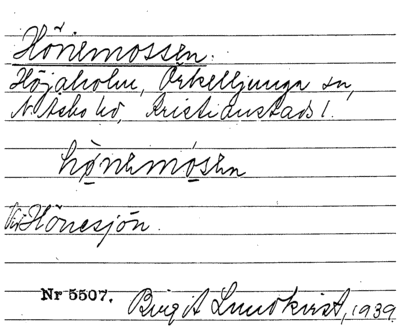 Hönemossen.
Höjaholm, Örkelljunga sn,
N. Åsbo hd, Kristianstads l.
hønemósen
Vid Hönesjön.
Nr 5507. Birgit Lundkvist, 1939.